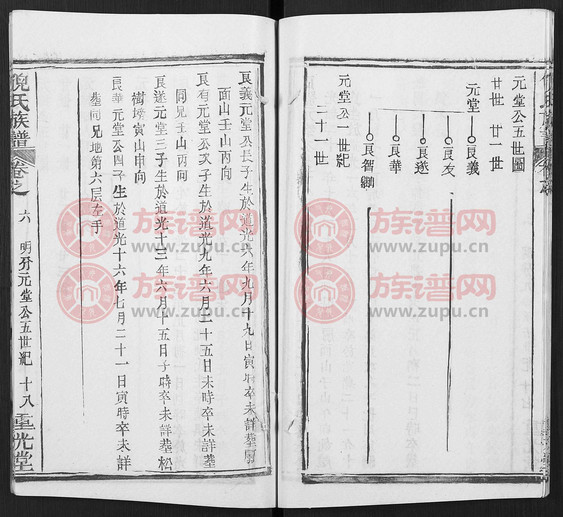 元堂公五世圖
廿世 廿一世
元堂
良義
良友
良遂
良華
良智嗣
元堂公一世紀
二十一世
良義元堂公長子生於道光六年九月十九日寅時卒未詳塟
面山壬山丙向
良有元堂公次子生於道光九年六月二十五日未時卒未詳塟
同兄壬山丙向
良遂元堂三子生於道光十三年六月十五日子時卒未詳塟松
樹塆寅山申向
良華元堂公四子生於道光十六年七月二十一日寅時卒未詳
塟同兄地第六层左手
倪氏族譜 卷之六 明分元堂公五世紀 十八 重光堂
族谱网
www.zupu.cn
族谱网
www.zupu.cn
族谱网
www.zupu.cn
族谱网
www.zupu.cn